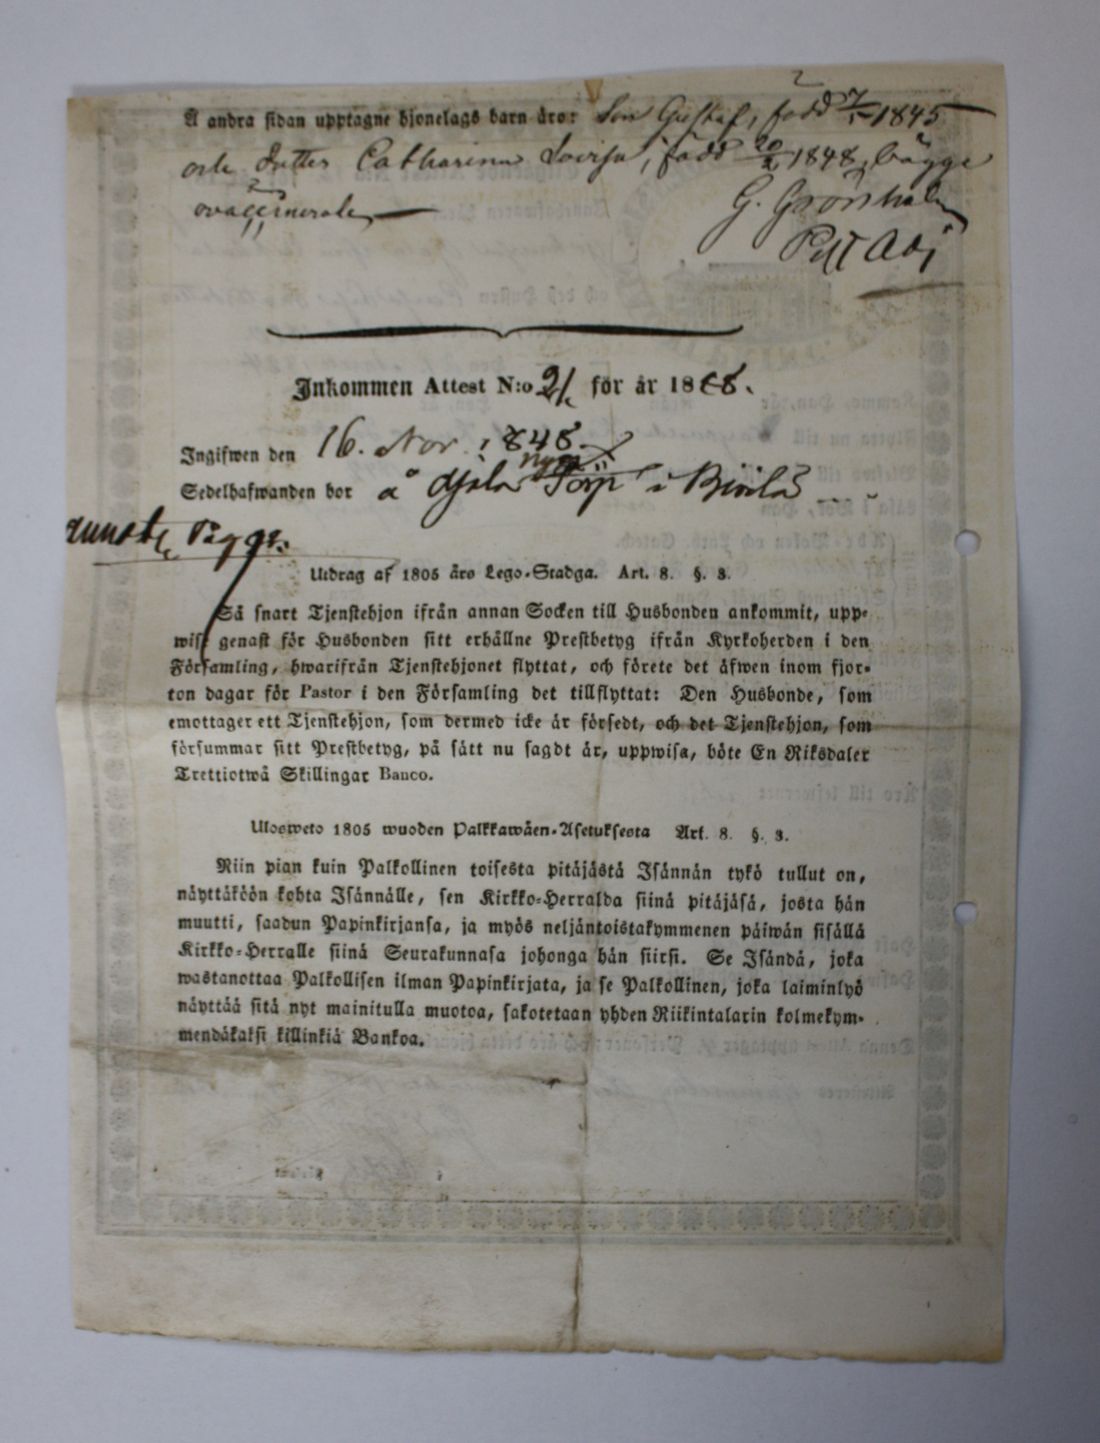 Å andra sidan upptagne hjonelags barn äro: Son Gustaf, född 7/1 1845
och dotter Catharina Lovisa, född 1848, bägge
ovaccinerade
G. Grönholm
Past Adj
Inkommen Attest N:o 21 för år 1848.
Ingifwen den 16. Nov. 1848.
Sedelhafwanden bor å nya Torp i
Utdrag af 1805 års Lego-Stadga. Art. 8. §. 3.
Så snart Tjenstehjon ifrån annan Socken till Husbonden ankommit, upp-
wise genast för Husbonden sitt erhållne Prestbetyg ifrån Kyrkoherden i den
Församling, hwarifrån Tjenstehjonet flyttat, och förete det äfwen inom fjor-
ton dagar för Pastor i den Församling det tillflyttat: Den Husbonde, som
emottager ett Tjenstehjon, som dermed icke är försedt, och det Tjenstehjon, som
försummar sitt Prestbetyg, på sätt nu sagdt är, uppwisa, böte En Riksdaler
Trettiotwå Skillingar Banco.
Ulosweto 1805 wuoden Palkkawäen-Asetuksesta Art. 8. §. 3.
Niin pian kuin Palkollinen toisesta pitäjästä Isännän tykö tullut on,
näyttäköön kohta Isännälle, sen Kirkko-Herralda siinä pitäjäsä, josta hän
muutti, saadun Papinkirjansa, ja myös neljäntoistakymmenen päiwän sisällä
Kirkko-Herralle siinä Seurakunnasa johonga hän siirsi. Se Isändä, joka
wastanottaa Palkollisen ilman Papinkirjata, ja se Palkollinen, joka laiminlyö
näyttää sitä nyt mainitulla muotoa, sakotetaan yhden Riikintalarin kolmekym-
mendäkaksi killinkiä Bankoa.